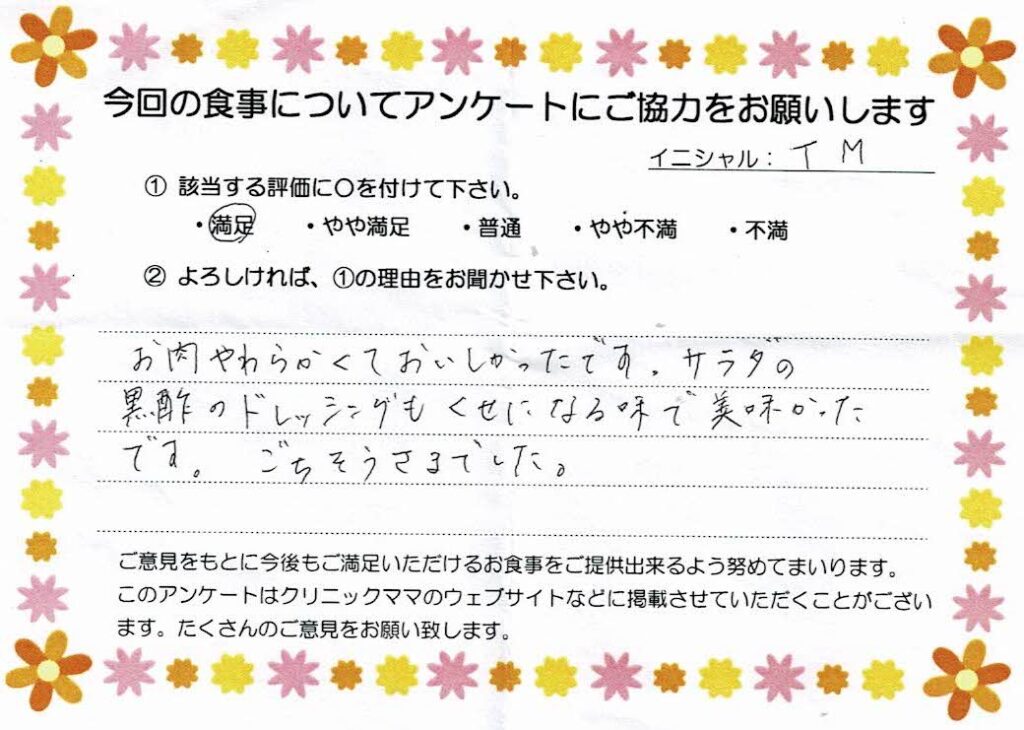 今回の食事についてアンケートにご協力をお願いします
イニシャル： T M
① 該当する評価に〇を付けて下さい。
・満足 ・やや満足 ・普通 ・やや不満 ・不満
② よろしければ、①の理由をお聞かせ下さい。
お肉やわらかくておいしかったです。サラダの
黒酢のドレッシングもくせになる味で美味かった
です。 ごちそうさまでした。
ご意見をもとに今後もご満足いただけるお食事をご提供出来るよう努めてまいります。
このアンケートはクリニックママのウェブサイトなどに掲載させていただくことがござい
ます。たくさんのご意見をお願い致します。